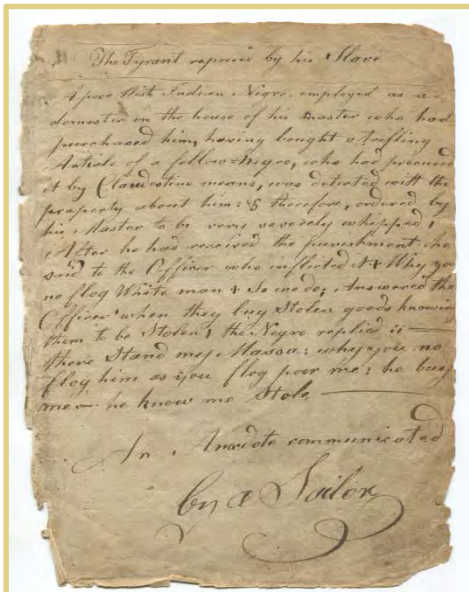 The Tyrant reproved by his Slave
A poor West Indian Negro, employed as a
domestic in the house of his master who had
purchased him, having bought a trifling
Article of a fellow=Negro, who had procured
it by Clandestine means, was detected with the
property about him: & therefore, ordered by
his Master to be very severely whipped,
After he had received the punishment he
said to the Officer who inflicted it Why you
no flog White man So we do; Answered the
Officer when they buy Stolen goods knowing
them to be Stolen; the Negro replied
there Stand my Massa: why you no
flog him as you flog poor me: he buy
me— he know me Stole
An Anecdote communicated
by a Sailor